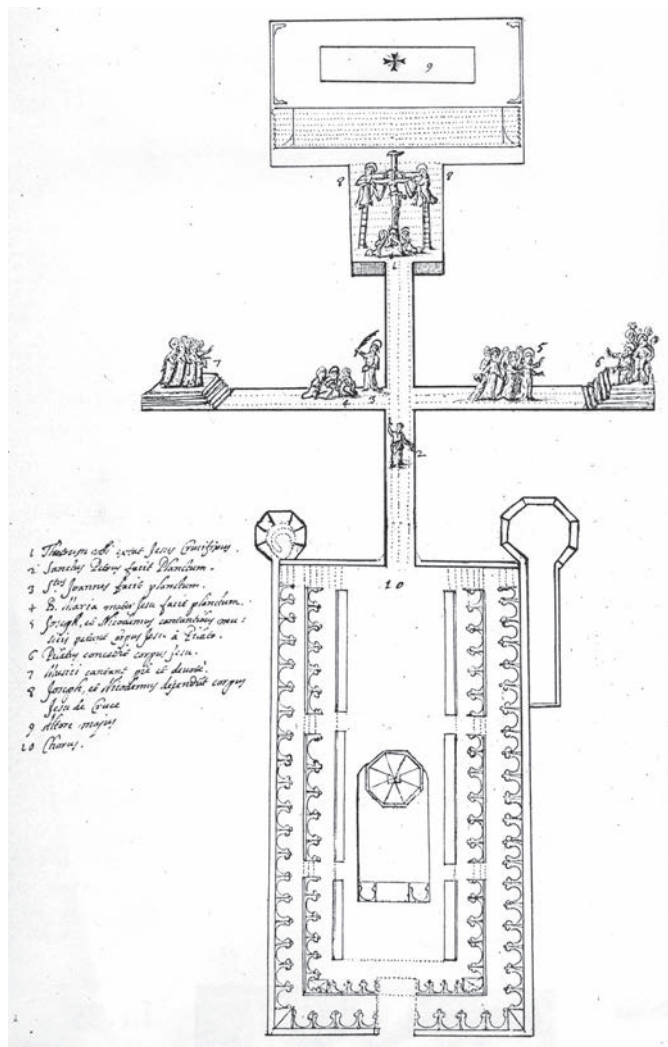 9
8 8
1
7 5 6
4 3
2
10
1 Theatrum ubi extat Jesus Crucifixus.
2 Sanctus Petrus facit Planctum.
3 Stus Joannes facit planctum.
4 B. Maria mater Jesu facit planctum.
5 Joseph, et Nicodemus cantantibus mu=
sicis petunt corpus Jesu à Pilato.
6 Pilatus concedit corpus Jesu.
7 Musici cantant piè et devotè.
8 Joseph, et Nicodemus descendunt corpus
Jesu de Cruce
9 Altare majus
10 Chorus.